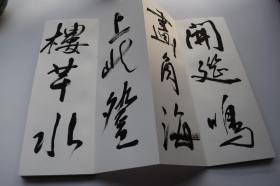 開筵鳴
畫角海
上此登
樓芊水